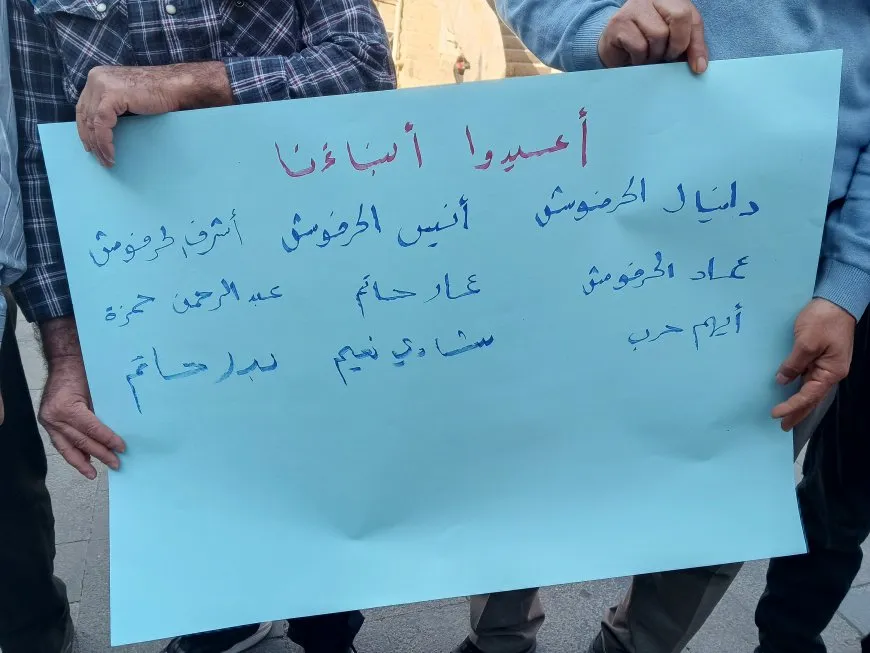 أعيدوا أبناءنا
دانيال الحرفوش أنيس الحرفوش أشرف الحرفوش
عماد الحرفوش عمار حاتم عبد الرحمن حمزة
أيهم حرب شادي نعيم بدر حاتم